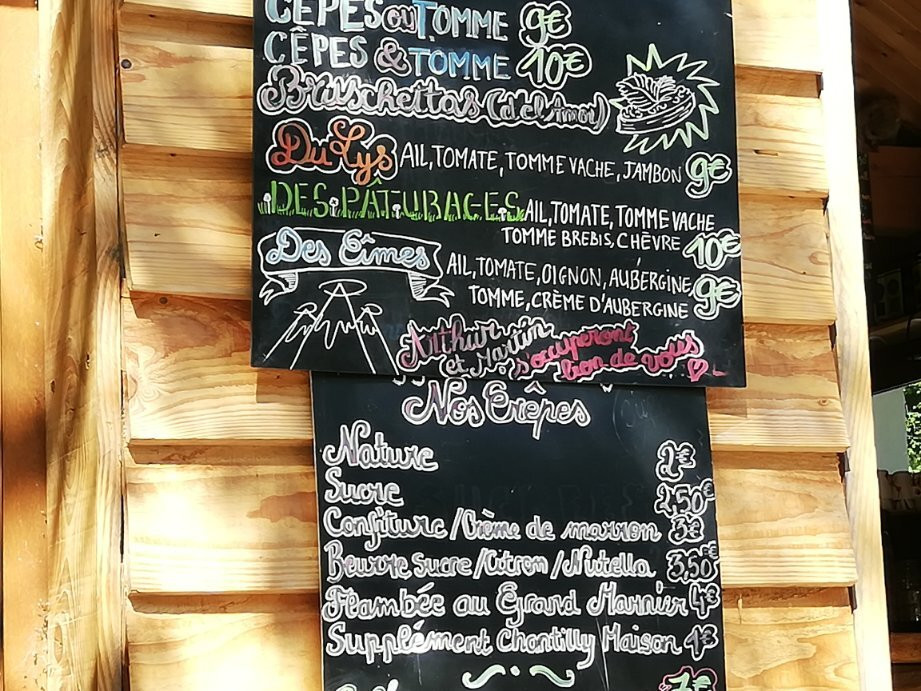 CÈPES OU TOMME 9€
CÊPES & TOMME 10€
Bruschettas (d'el Amor)
Du Lys AIL, TOMATE, TOMME VACHE, JAMBON 9€
DES PÂTURAGES AIL, TOMATE, TOMME VACHE
TOMME BREBIS, CHÈVRE 10€
Des Cîmes AIL, TOMATE, OIGNON, AUBERGINE,
TOMME, CRÈME D'AUBERGINE 9€
Arthur et Martin s'occuperont
bon de vous
Nos Crêpes
Nature 2€
Sucre 2,50€
Confiture / Crème de marron 3€
Beurre Sucre / Citron / Nutella 3,50€
Flambée au Grand Marnier 4€
Supplément Chantilly Maison 1€
1€